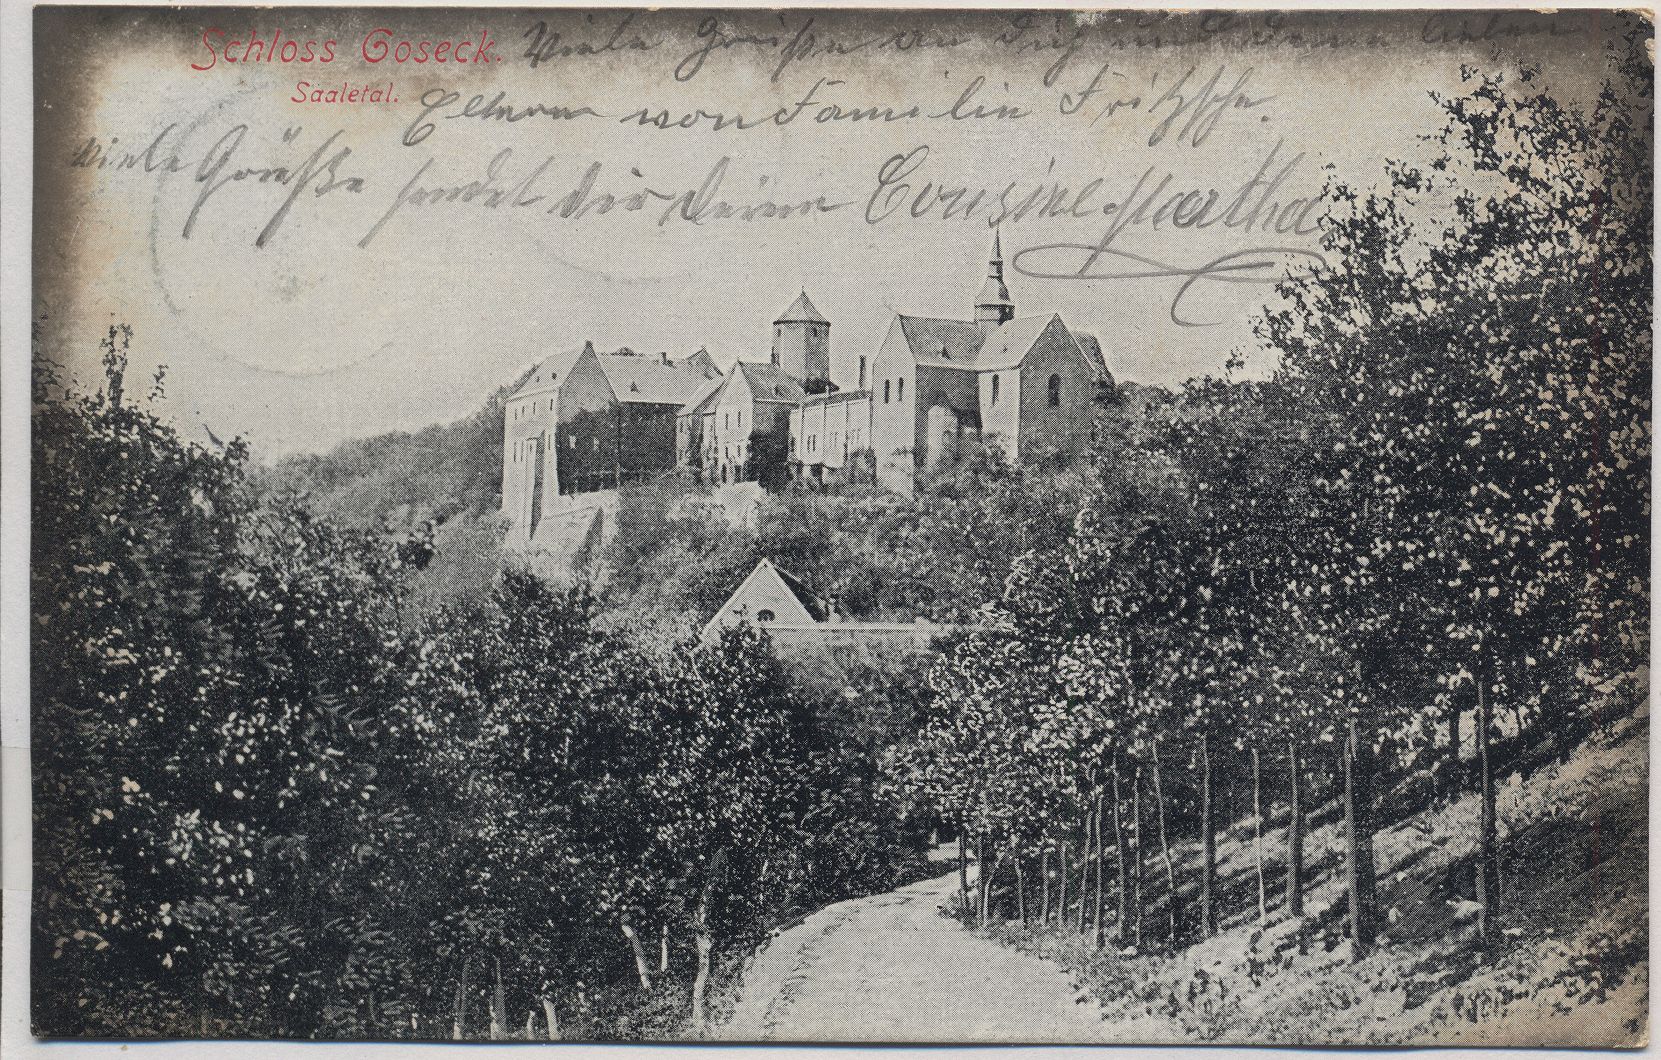 Schloss Goseck. Viele Grüße an Dich und Deine lieben
Saaletal. Eltern von Familie Fritzsche.
Viele Grüße sendet Dir Deine Cousine Martha